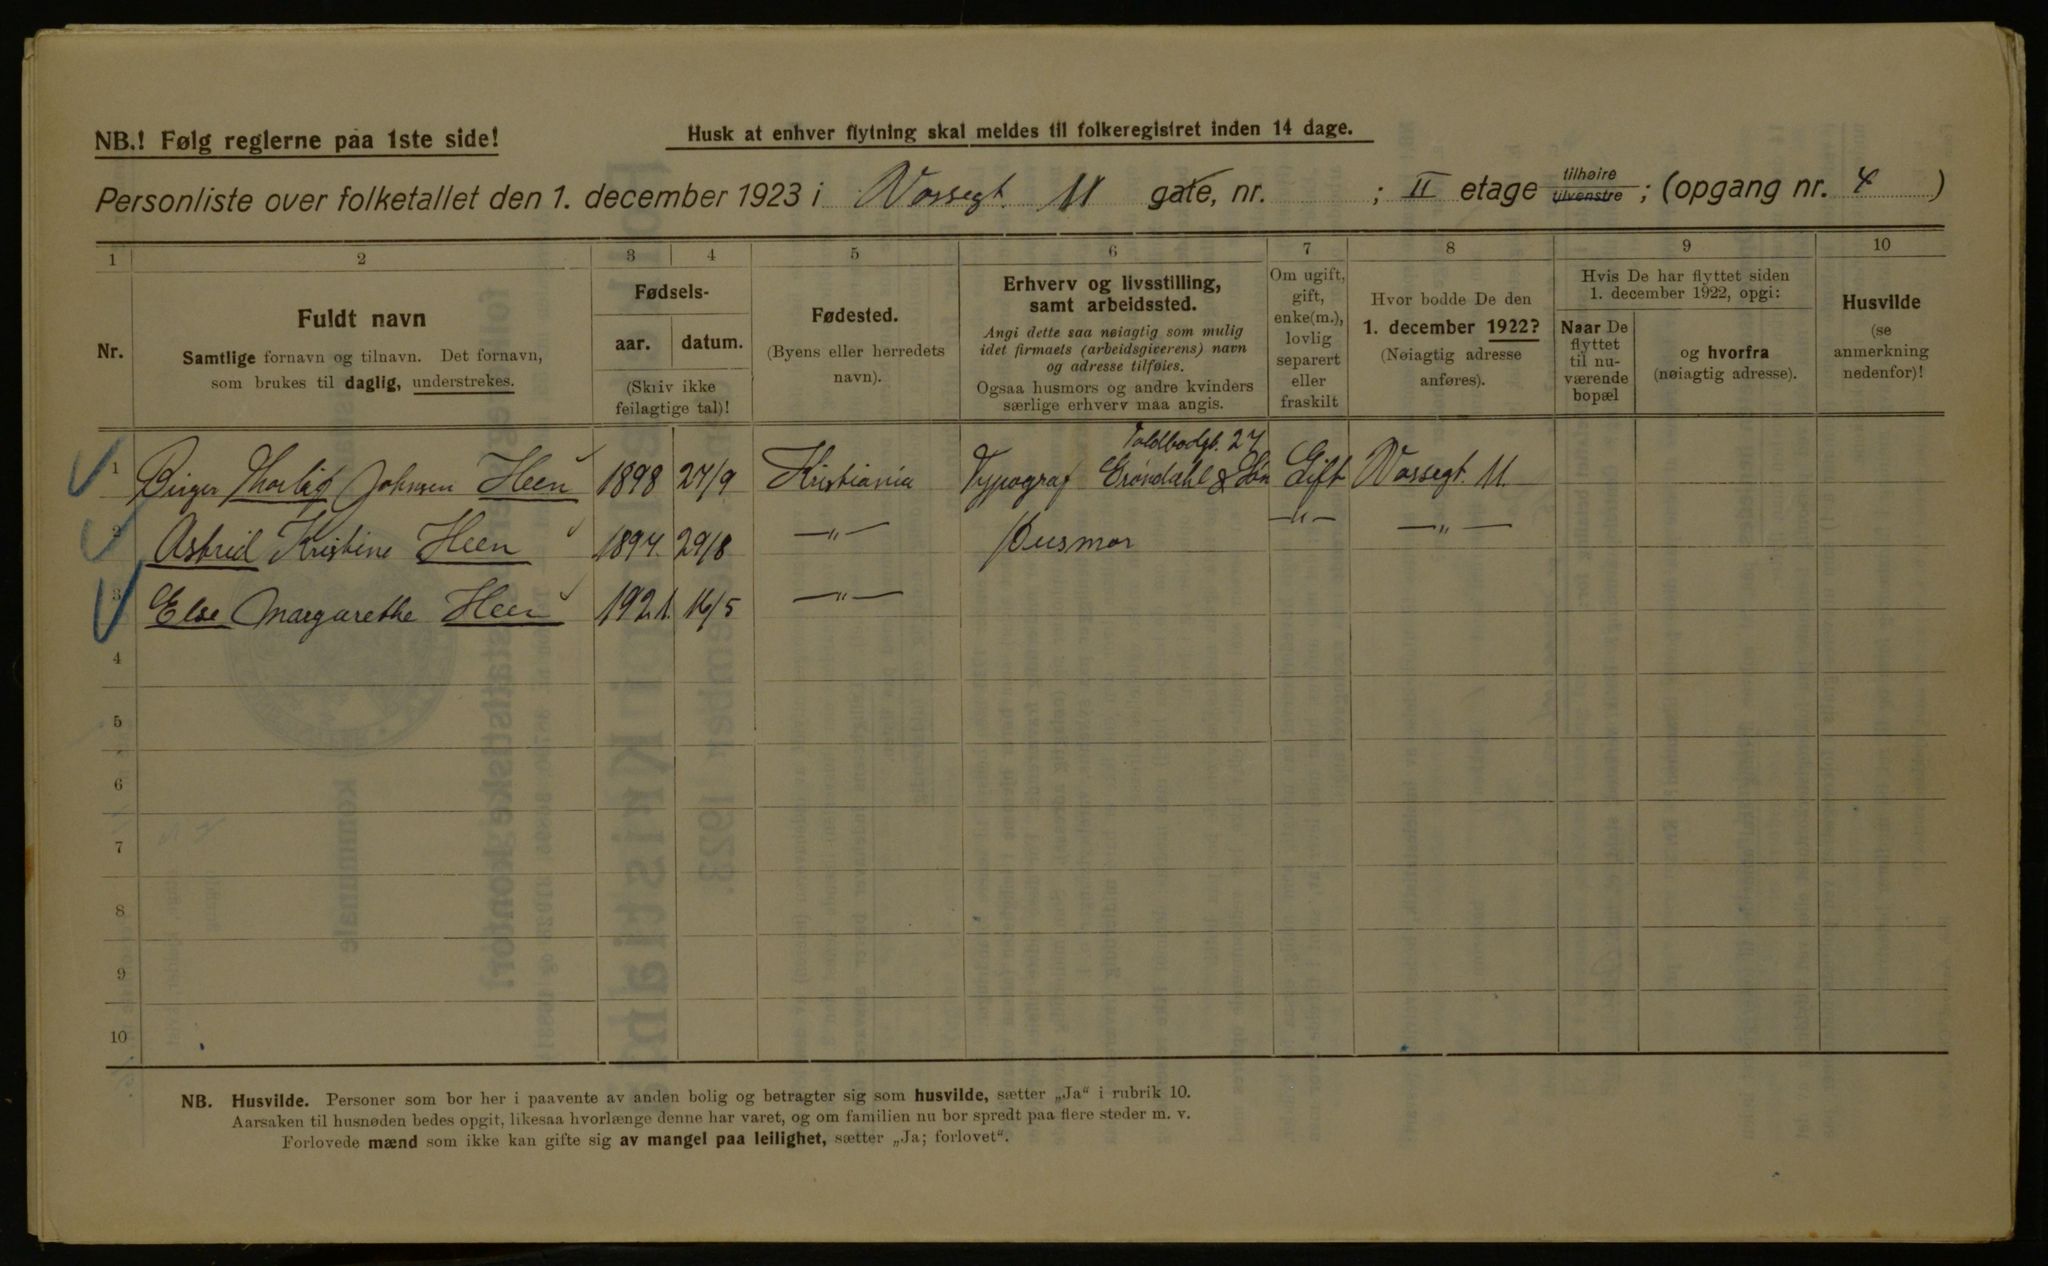 NB.! Følg reglerne paa 1ste side!
Husk at enhver flytning skal meldes til folkeregistret inden 14 dage.
Personliste over folketallet den 1. december 1923 i Vossegt. 11 gate, nr. ; II etage tilhøire tilvenstre ; (opgang nr. 4 )
1 2 3 4 5 6 7 8 9 10
Nr.
Fuldt navn
Samtlige fornavn og tilnavn. Det fornavn,
som brukes til daglig, understrekes.
Fødsels-
aar. datum.
(Skriv ikke
feilagtige tal)!
Fødested.
(Byens eller herredets
navn).
Erhverv og livsstilling,
samt arbeidssted.
Angi dette saa nøiagtig som mulig
idet firmaets (arbeidsgiverens) navn
og adresse tilføies.
Ogsaa husmors og andre kvinders
særlige erhverv maa angis.
Om ugift,
gift,
enke(m.),
lovlig
separert
eller
fraskilt
Hvor bodde De den
1. december 1922?
(Nøiagtig adresse
anføres).
Hvis De har flyttet siden
1. december 1922, opgi:
Naar De
flyttet
til nu-
værende
bopæl
og hvorfra
(nøiagtig adresse).
Husvilde
(se
anmerkning
nedenfor)!
Toldbodgt. 27
1 Birger Thorleif Johnsen Heen 1898 27/9 Kristiania Typograf Grøndahl & Søn Gift Vossegt. 11.
2 Astrid Kristine Heen 1894. 29/8 —"— Husmor —"— —"—
3 Else Margarethe Heen 1921. 16/5 —"—
4
5
6
7
8
9
10
NB. Husvilde. Personer som bor her i paavente av anden bolig og betragter sig som husvilde, sætter „Ja“ i rubrik 10.
Aarsaken til husnøden bedes opgit, likesaa hvorlænge denne har varet, og om familien nu bor spredt paa flere steder m. v.
Forlovede mænd som ikke kan gifte sig av mangel paa leilighet, sætter „Ja; forlovet“.